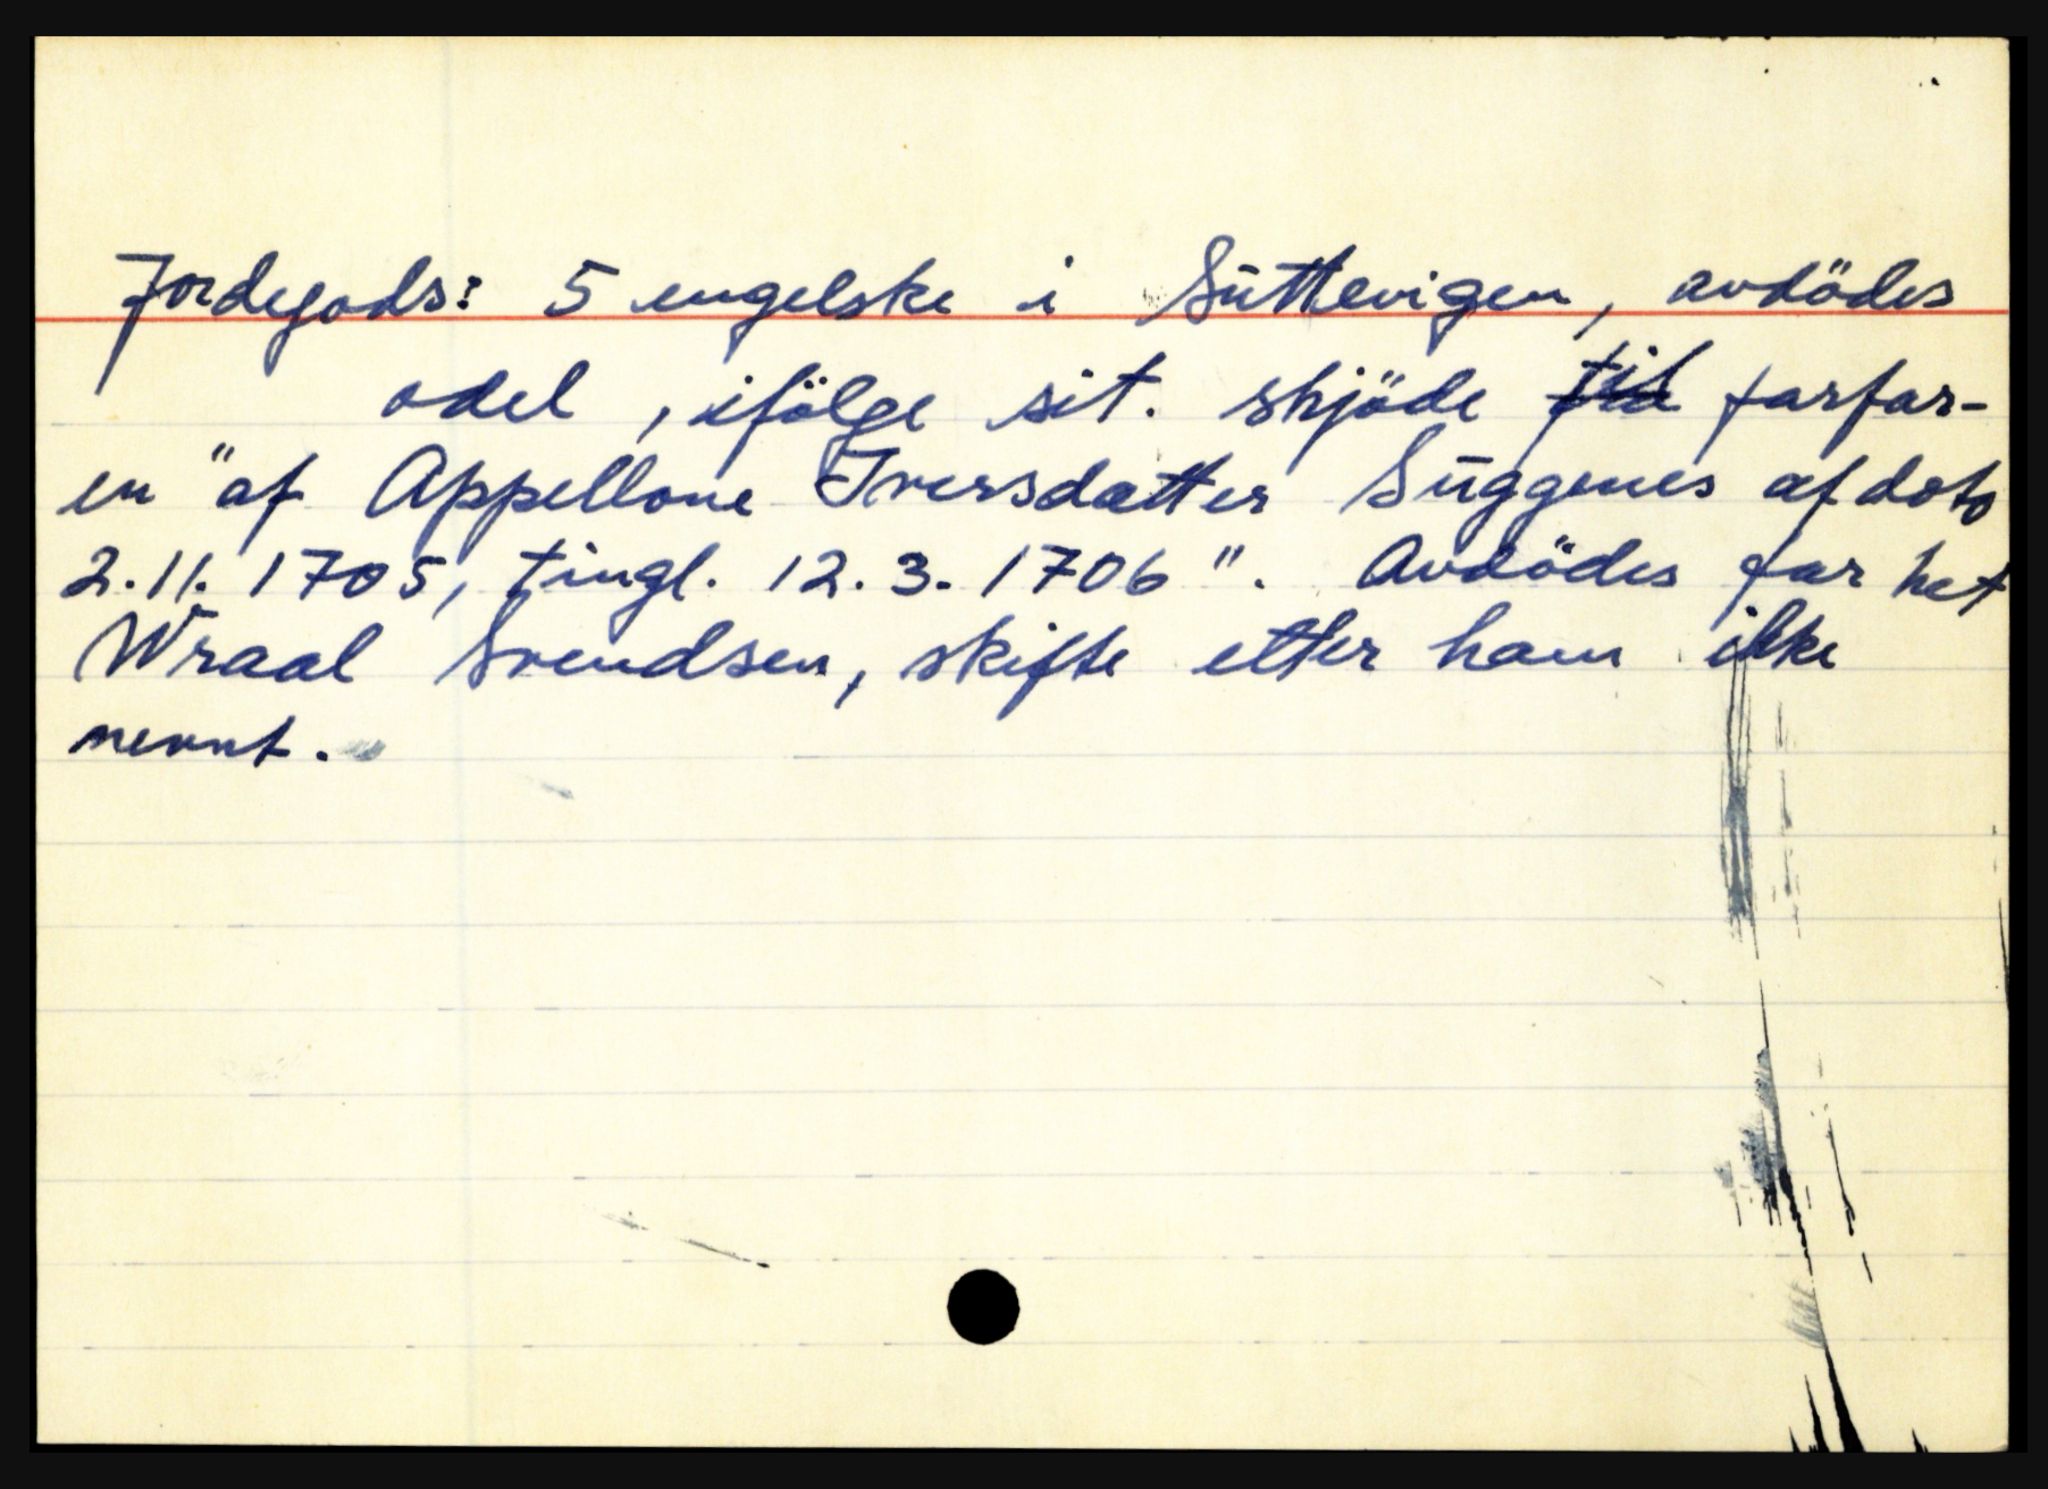 Jordegods: 5 engelske i Sūttevigen, avdödes
odel, ifölge sit. skjöde til farfar-
en "af Appellone Iversdatter Sūggenes af dato
2.11.1705, tingl. 12.3.1706". Avdödes far het
Wraal Svendsen, skifte etter ham ikke
nevnt.